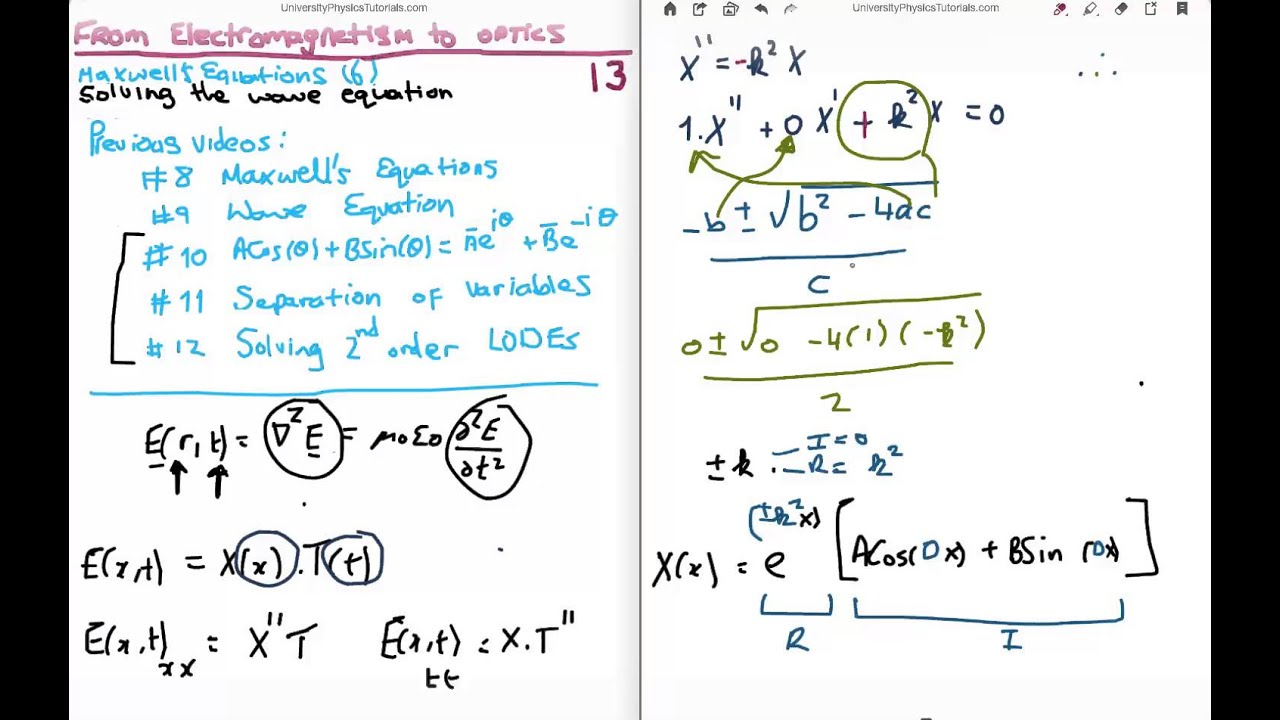 UniversityPhysicsTutorials.com
From Electromagnetism to OPTICS
Maxwell's Equations (6)
13
Solving the wave equation
Previous videos:
#8 Maxwell's Equations
#9 Wave Equation
#10 ACos(θ) + BSin(θ) = A̅e^{iθ} + B̅e^{-iθ}
#11 Separation of variables
#12 Solving 2nd order LODEs
E(r, t) = ∇²E = μ0ε0 ∂²E/∂t²
E(x,t) = X(x).T(t)
E(x,t)xx = X''T E(x,t)tt = X.T''
UniversityPhysicsTutorials.com
X'' = -k²X
1.X'' + 0X' + k²X = 0
-b ± √b² - 4ac
c
0 ± √0 - 4(1)(-k²)
2
±k. - I = 0
- R = k²
X(x) = e^(±k²x) [ACos(0x) + BSin(0x)]
R I